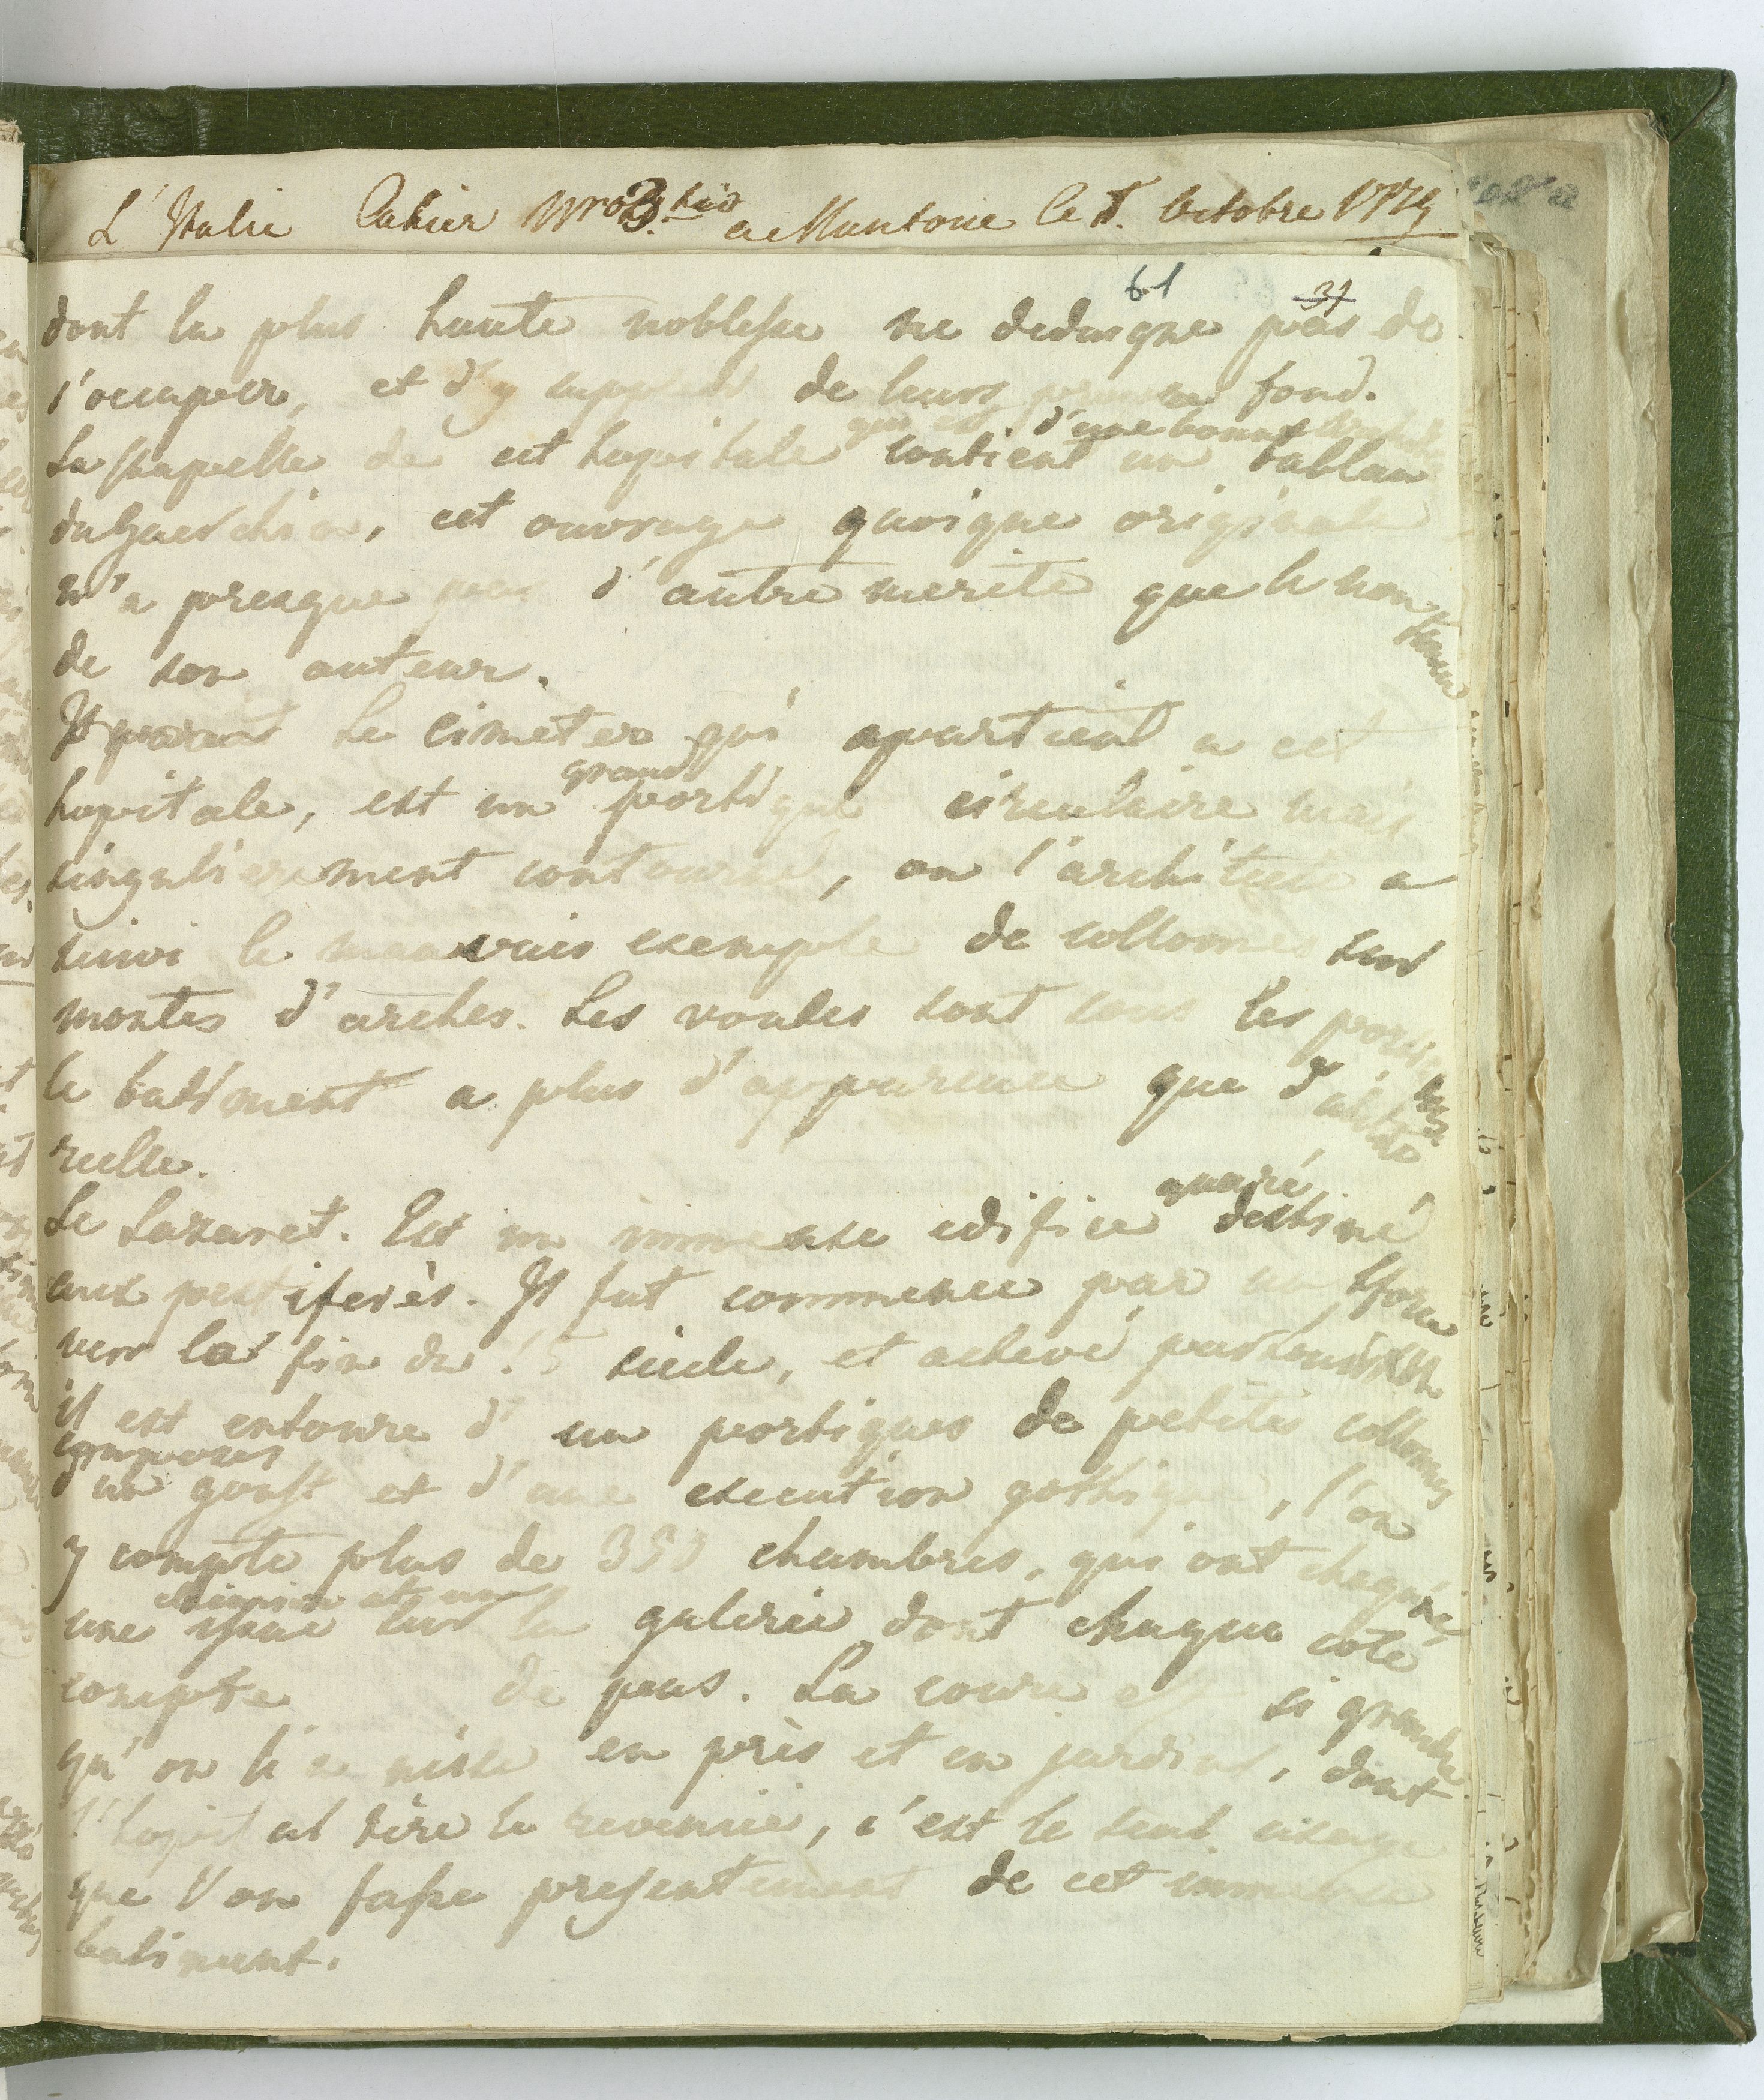 L'Italie Cahier Nro 3. bis a Mantoue le 8. Octobre
61 31
dont la plus haute noblesse ne dedaigne pas de
s'occuper, et d'y de leurs fond.
qui est d'une bonne
La chapelle de cet hopitale contient un tablau
du Guerchin, cet ouvrage quoique originale
n'a presque pas d'autre merite que le nom
de son auteur.
Le cimeter qui apartient a cet
grand
hopitale, est un portique circulaire mais
singulierement contourné, ou l'architecte a
suivi le mauvais exemple de collonnes sur
montes d'arches. Les voutes sont sous les
le batiment a plus d'apparence que d'utilité
reelle.
quarré
Le Lazaret. Est un immense edifice destiné
aux pestiferès. Il fut commencé par un Sforce
vers la fin du 15 siecle, et achevé par Louis XII
il est entoure d'un portiques de petites collonnes
composes
d'un goust et d'une execution gothique, l'on
y compte plus de 350 chambres, qui ont chaqune
cheminée et une
une issue sur la galerie dont chaque coté
compte de pas. La coure est si grande
qu'on l'a mise en près et en jardins, dont
l'hopital tire le revenue, c'est le seul usage
que l'on fasse presentement de cet immense
batiment.